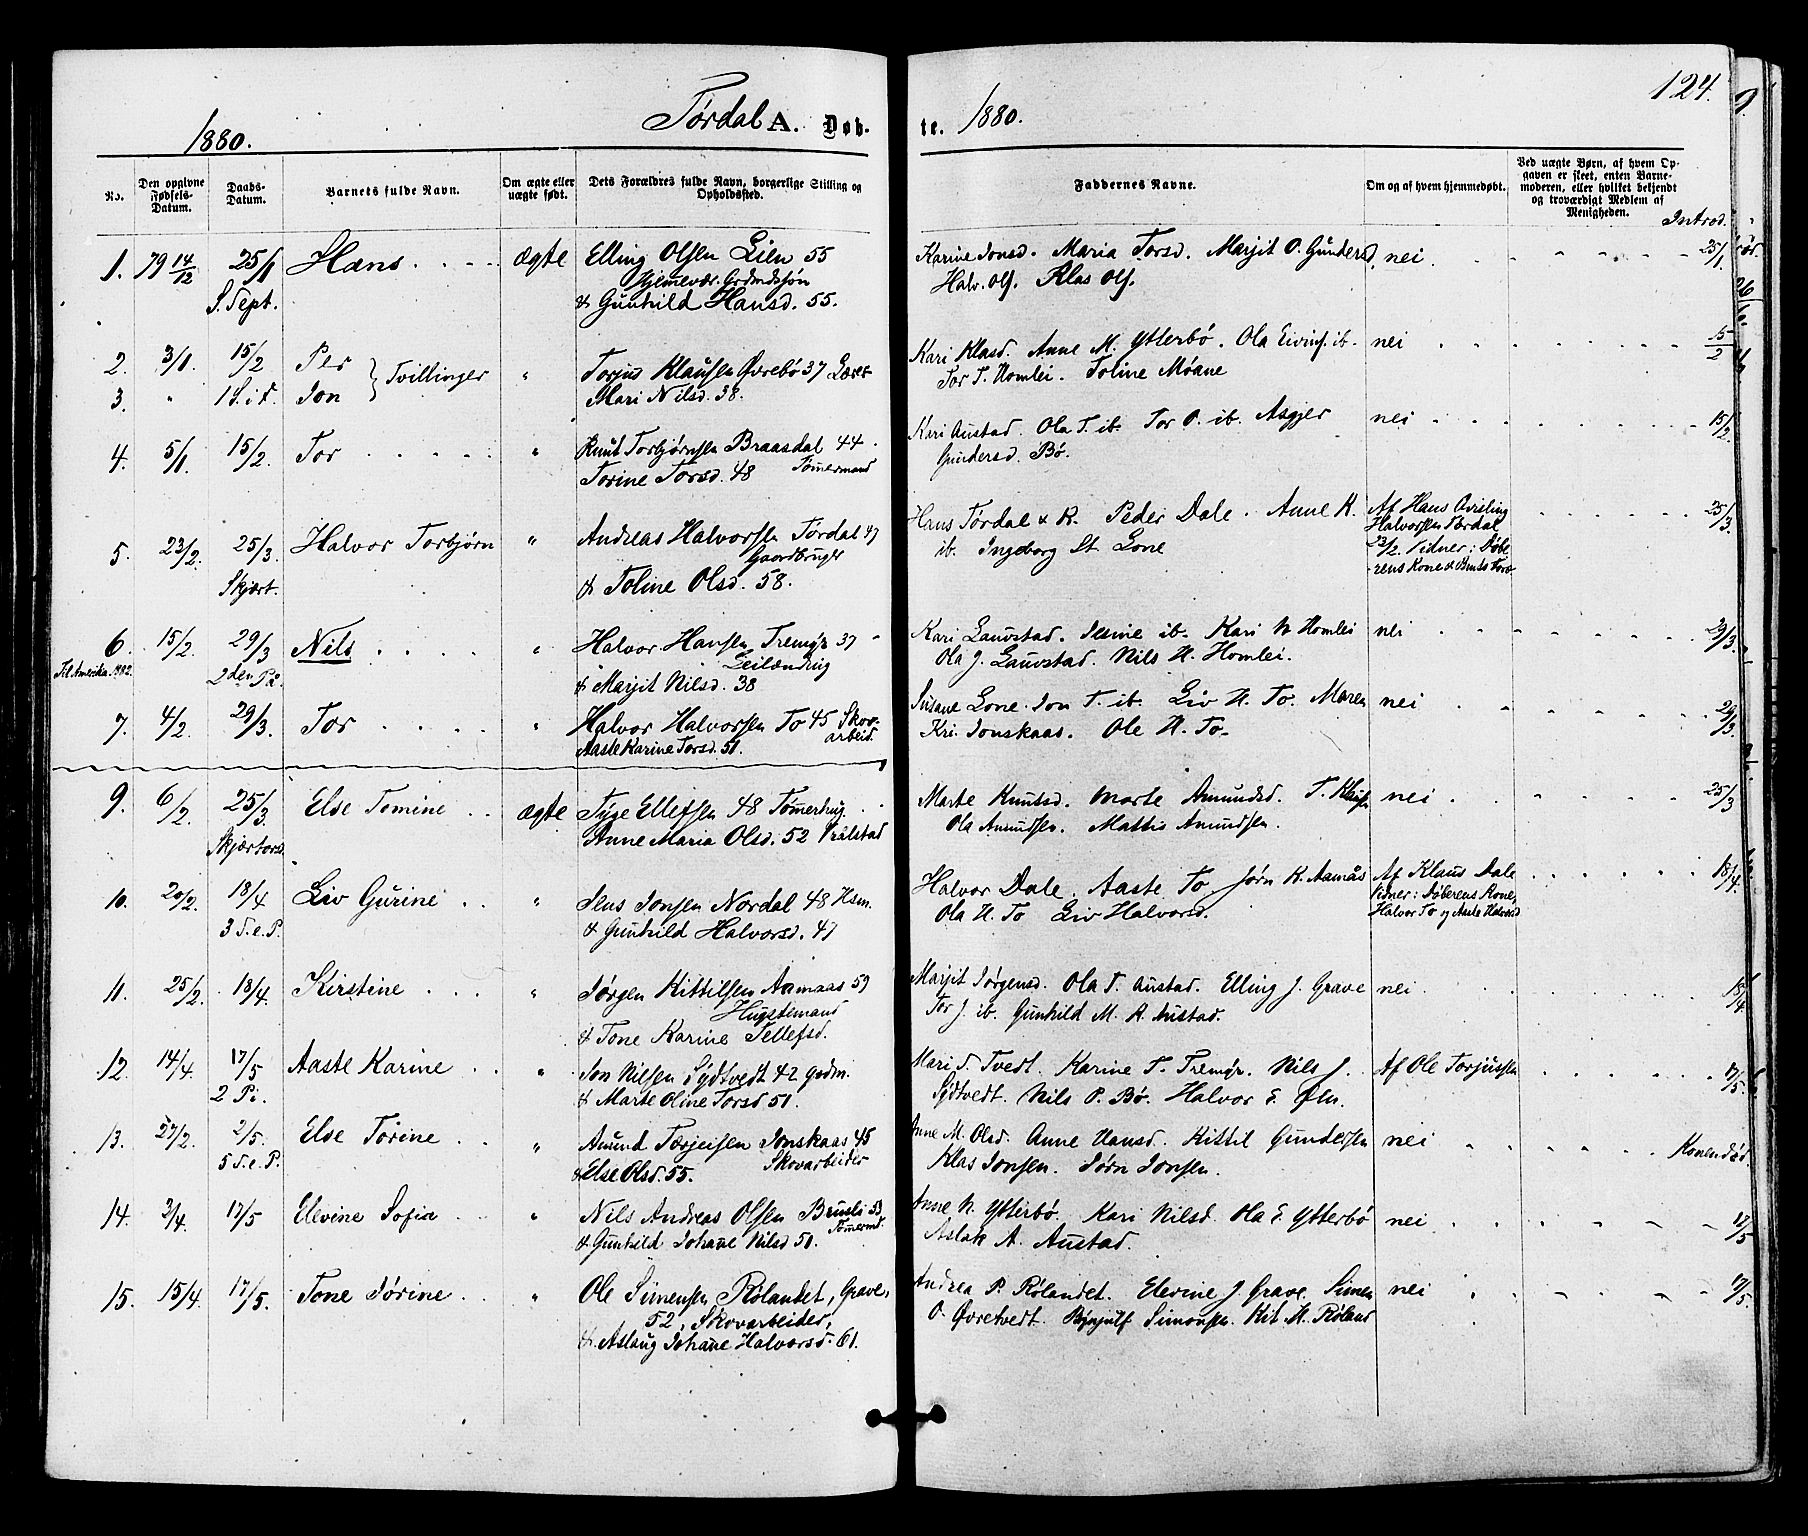 1880. Tørdal A. Døb-
te. 1880. 124.
No.
Den opgivne Fødsels-Datum.
Daabs-Datum.
Barnets fulde Navn.
Om ægte eller uægte født.
Dets Forældres fulde Navn, borgerlige Stilling og Opholdssted.
Faddernes Navne.
Om og af hvem hjemmedøbt.
Ved uægte Børn, af hvem Opgaven er skeet, enten Barnemoderen, eller hvilket bekjendt og troværdigt Medlem af Menigheden.
Introd.
1. 79 14/12 25/1 Hans. ægte Elling Olsen Lien 55 Karine Jonsd. Maria Torsd. Marjit O. Gundersd. nei 25/1
S. Sept. Halv. Ols. Klas Ols.
& Gunhild Hansd. 55.
2. 3/1 15/2 Per } Tvillinger " Torjus Klausen Øvrebø 37 Kari Klasd. Anne M. Ytterbø. Ola Eivins. ib. nei 15/2
3. " 1 S. i F. Jon Mari Nilsd. 38. Tor T. Homlei. Toline Moane
4. 5/1 15/2. Tor " Knut Torbjørnsen Braasdal 44 Kari Austad. Ola T. ib. Tor O. ib. Asgjer nei 15/2
Torine Torsd. 48 Tømermand Gundersd. Bø.
5. 23/2. 25/3. Halvor Torbjørn " Andreas Halvorsen Tørdal 47 Hans Tørdal & K. Peder Dale. Anne K. Af Hans Qvisling 25/3
Gaardbruger ib. Ingeborg St. Lone Halvorsen Tørdal
Skjært. & Toline Olsd. 58. 23/2. Vidner: Døbe-
rens Kone &
6. 15/2. 29/3 Nils " Halvor Hansen Tremyr 37 Kari Lauvstad. ib. Kari N Homlei nei 29/3
Til Amerika 1882. 2den På. Leilænding Ola J. Lauvstad. Nils H. Homlei.
& Marjit Nilsd. 38
7. 4/2. 29/3. Tor " Halvor Halvorsen To 45 Skovarbeid. Susane Lone. Jon T. ib. Liv H. To. Maren nei 29/3.
Aaste Karine Torsd. 51. Kri. Jonskaas. Ole H. To.
9. 6/2. 25/3. Else Tomine ægte Tyge Ellefsen 48 Tømerhug. Marte Knutsd. Marte Amundsd. T. nei 25/3
Skjærtorsd. Anne Maria Olsd. 52 Vrålstad Ola Amundsen. Mattis Amundsen.
10. 20/2. 18/4 Liv Gurine " Jens Jonsen Nordal 48 Hsm. Halvor Dale. Aaste To Jørn K. Aamås Af Klaus Dale 18/4.
3 S. e. P. & Gunhild Halvorsd. 47 Ola H. To Liv Halvorsd. Vidner: Døberens Kone,
Halvor To og Aaste Halvorsd
11. 25/2. 18/4. Kirstine " Jørgen Kittilsen Aamaas 59 Marjit Jørgensd. Ola T. Austad. Elling J. Grave nei 18/4
Hugstemand Tor J. ib. Gunhild M. A. Austad.
& Tone Karine Tellefsd.
12. 14/4. 17/5 Aaste Karine " Jon Nilsen Sydtvedt 42 gdm. Mari S. Tvedt. Karine T. Tremyr. Nils J. Af Ole Torjussen 17/5.
2 Pi. & Marte Oline Torsd 51. Sydtvedt. Nils P. Bø. Halvor E.
13. 27/2. 2/5. Else Torine " Amund Tarjeisen Jonskaas 45 Anne M. Olsd. Anne Hansd. Kittil Gundersen nei Konen død.
5 S. e. P. Skovarbeider Klas Jonsen. Jørn Jonsen.
& Else Olsd. 55.
14. 3/4. 17/5 Elevine Sofia " Nils Andreas Olsen Brusli 53 Anne N. Ytterbø. Kari Nilsd. Ola E. Ytterbø nei 17/5
& Gunhild Johane Nilsd 50. Aslak A. Austad.
15. 15/4. 17/5. Tone Jørine " Ole Simensen Rølandet, Grave, Andrea P. Rølandet. Elevine J. Grave. Simen nei 17/5.
52, Skovarbeider, O. Øvretvedt. Simonsen. Kit. M. Røland
& Aslaug Johane Halvorsd. 61.